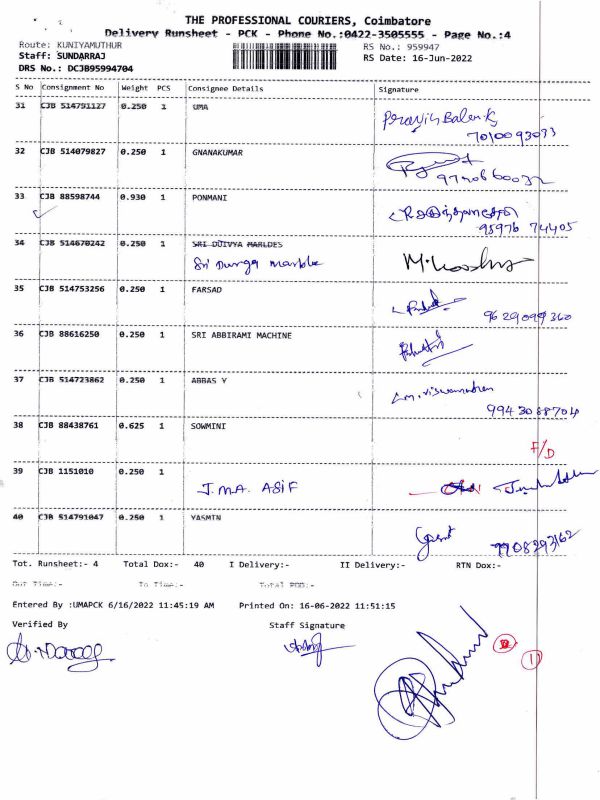 THE PROFESSIONAL COURIERS, Coimbatore
Delivery Runsheet - PCK - Phone No.:0422-3505555 - Page No.:4
Route: KUNIYAMUTHUR RS No.: 959947
Staff: SUNDARRAJ RS Date: 16-Jun-2022
DRS No.: DCJB95994704
S No Consignment No Weight PCS Consignee Details Signature
31 CJB 514791127 0.250 1 UMA
7010093093
32 CJB 514079827 0.250 1 GNANAKUMAR
33 CJB 88598744 0.930 1 PONMANI
95976 74405
34 CJB 514670242 0.250 1 SRI DUIVYA MARLDES
Sri Durga marble
35 CJB 514753256 0.250 1 FARSAD
9629099360
36 CJB 88616250 0.250 1 SRI ABBIRAMI MACHINE
37 CJB 514723862 0.250 1 ABBAS Y
m. viswanathan
9943088704
38 CJB 88438761 0.625 1 SOWMINI
F/D
39 CJB 1151010 0.250 1
J.M.A. ASIF
40 CJB 514791047 0.250 1 YASMIN
9908293162
Tot. Runsheet:- 4 Total Dox:- 40 I Delivery:- II Delivery:- RTN Dox:-
Out Time:- In Time:- Total POD:-
Entered By :UMAPCK 6/16/2022 11:45:19 AM Printed On: 16-06-2022 11:51:15
Verified By Staff Signature